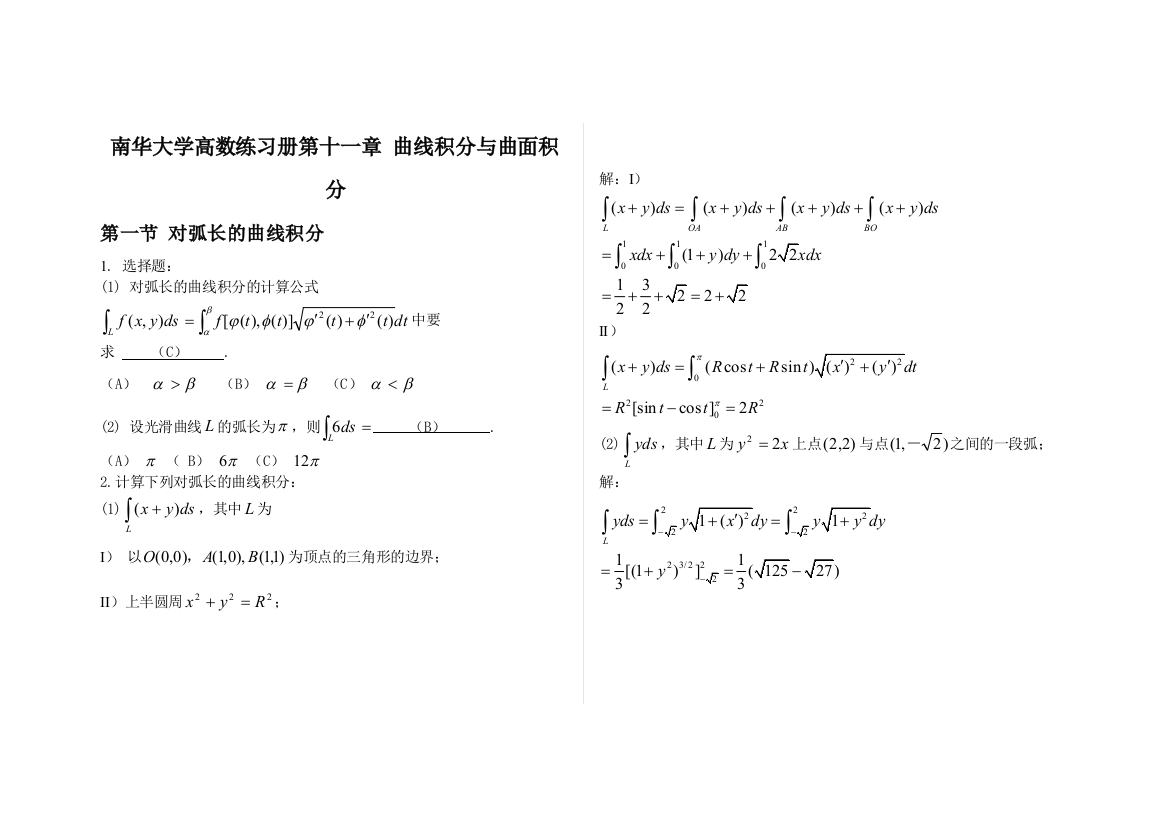 南华大学高数练习册第十一章 曲线积分与曲面积
分
第一节 对弧长的曲线积分
1. 选择题:
(1) 对弧长的曲线积分的计算公式
∫_L f(x, y)ds = ∫_α^β f[φ(t),ϕ(t)]√(φ′²(t)+ϕ′²(t))dt 中要
求 (C) .
(A) α > β (B) α = β (C) α < β
(2) 设光滑曲线 L 的弧长为 π ，则 ∫_L 6ds = (B) .
(A) π ( B) 6π (C) 12π
2.计算下列对弧长的曲线积分:
(1) ∫_L (x + y)ds ，其中 L 为
I） 以O(0,0)，A(1,0), B(1,1) 为顶点的三角形的边界；
II）上半圆周 x² + y² = R² ；
解：I）
∫_L (x + y)ds = ∫_OA (x + y)ds + ∫_AB (x + y)ds + ∫_BO (x + y)ds
= ∫_0^1 xdx + ∫_0^1 (1 + y)dy + ∫_0^1 2√2xdx
= 1/2 + 3/2 + √2 = 2 + √2
II）
∫_L (x + y)ds = ∫_0^π (R cos t + R sin t)√((x′)² + (y′)²) dt
= R²[sin t − cos t]_0^π = 2R²
(2) ∫_L yds ，其中 L 为 y² = 2x 上点(2,2) 与点(1,－√2)之间的一段弧；
解：
∫_L yds = ∫_{−√2}^2 y√(1+(x′)²)dy = ∫_{−√2}^2 y√(1+ y²)dy
= 1/3[(1+ y²)^{3/2}]_{−√2}^2 = 1/3(√125 − √27)